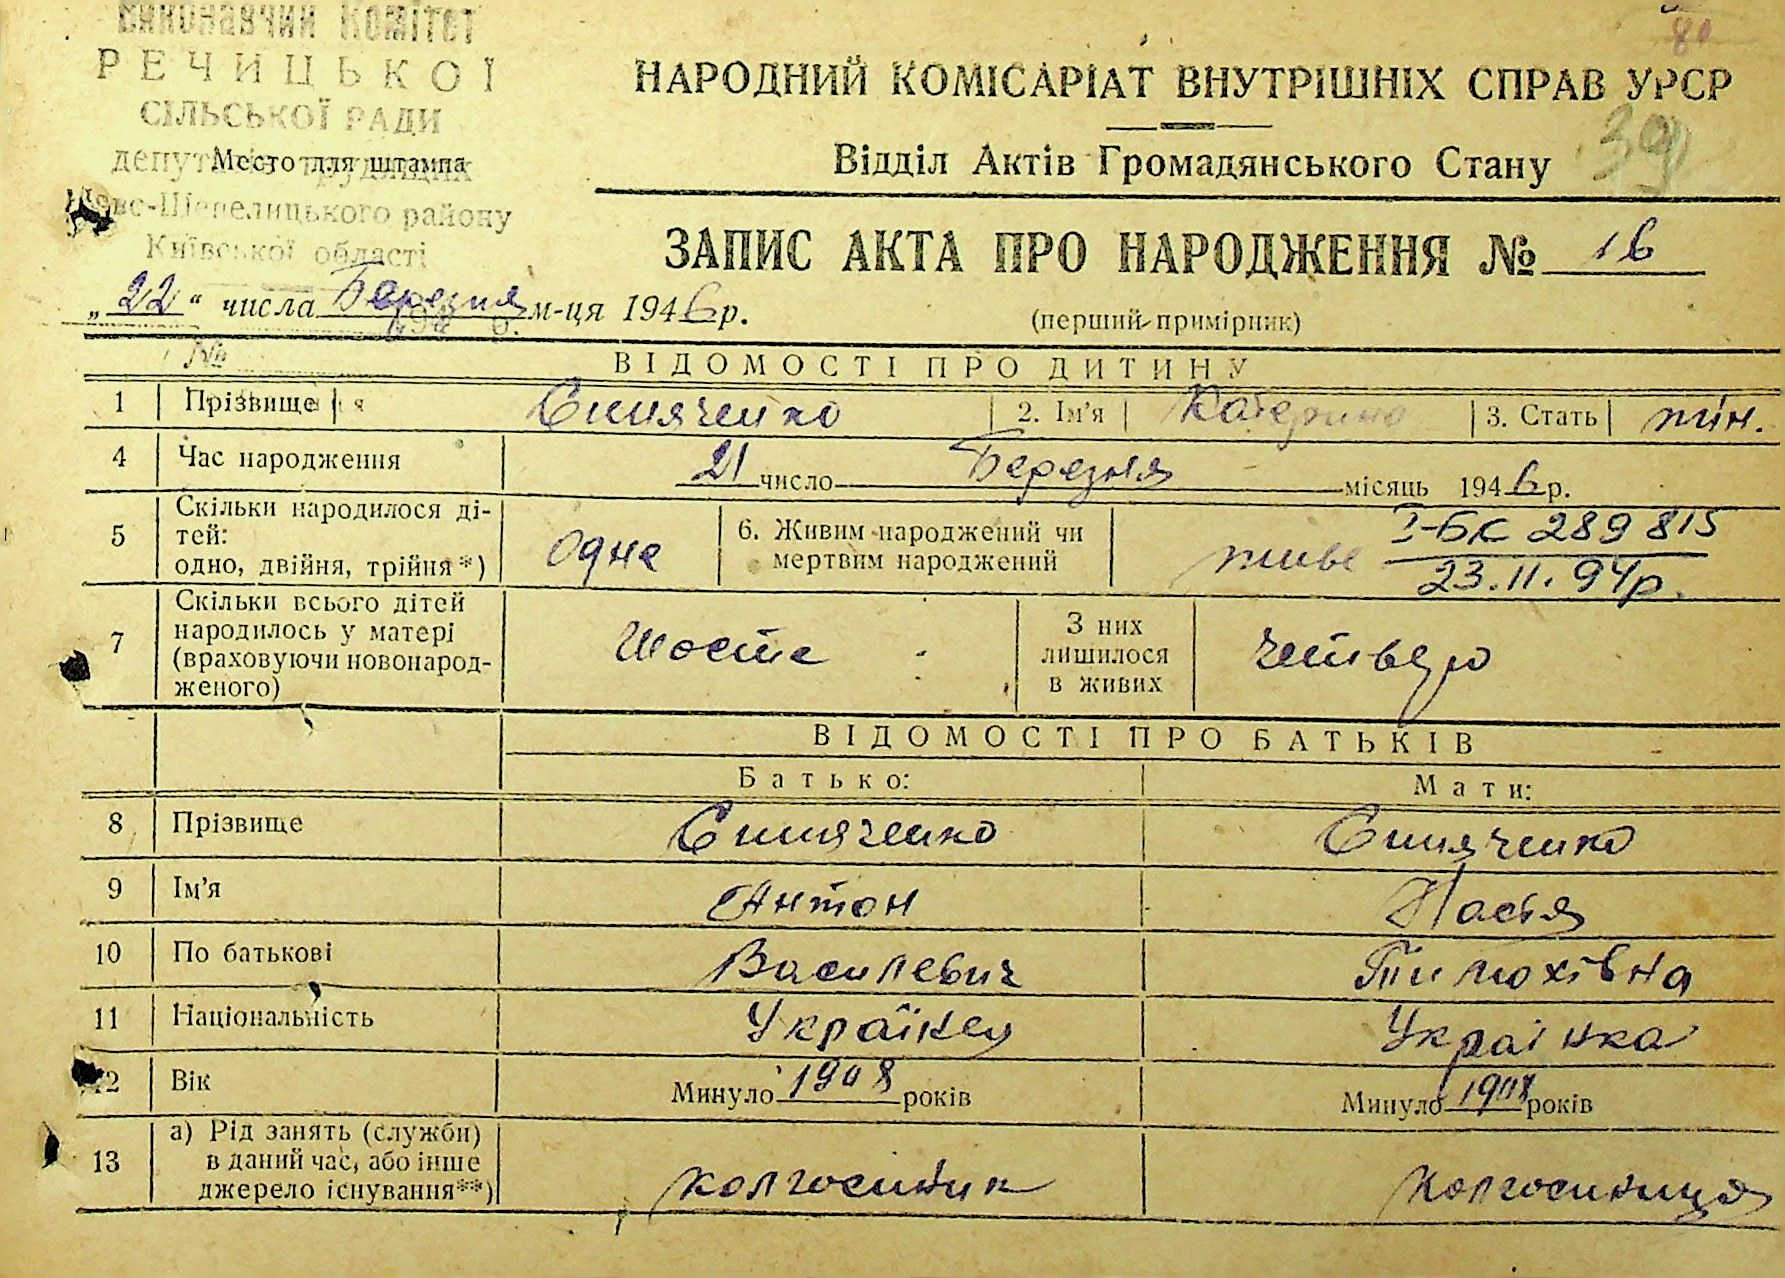 виконавчий комітет
РЕЧИЦЬКОЇ
СІЛЬСЬКОЇ РАДИ
депутатів трудящих
Ново-Шепелицького району
Київської області
Место для штампа
80
НАРОДНИЙ КОМІСАРІАТ ВНУТРІШНІХ СПРАВ УРСР
39
Відділ Актів Громадянського Стану
ЗАПИС АКТА ПРО НАРОДЖЕННЯ № 16
„22“ числа Березня м-ця 1946 р.
(перший примірник)
№
ВІДОМОСТІ ПРО ДИТИНУ
1 Прізвище Синяченко 2. Ім'я Катерина 3. Стать жін.
4 Час народження 21 число Березня місяць 1946 р.
5 Скільки народилося ді-
тей:
одно, двійня, трійня*) Одне 6. Живим народжений чи
мертвим народжений живе I-БК 289815
23.11.94р.
7 Скільки всього дітей
народилось у матері
(враховуючи новонарод-
женого) Шосте З них
лишилося
в живих четверо
ВІДОМОСТІ ПРО БАТЬКІВ
Батько: Мати:
8 Прізвище Синяченко Синяченко
9 Ім'я Антон Настя
10 По батькові Василевич Тимохівна
11 Національність Українец Українка
12 Вік Минуло 1908 років Минуло 1908 років
13 а) Рід занять (служби)
в даний час, або інше
джерело існування**) колгоспник колгоспниця